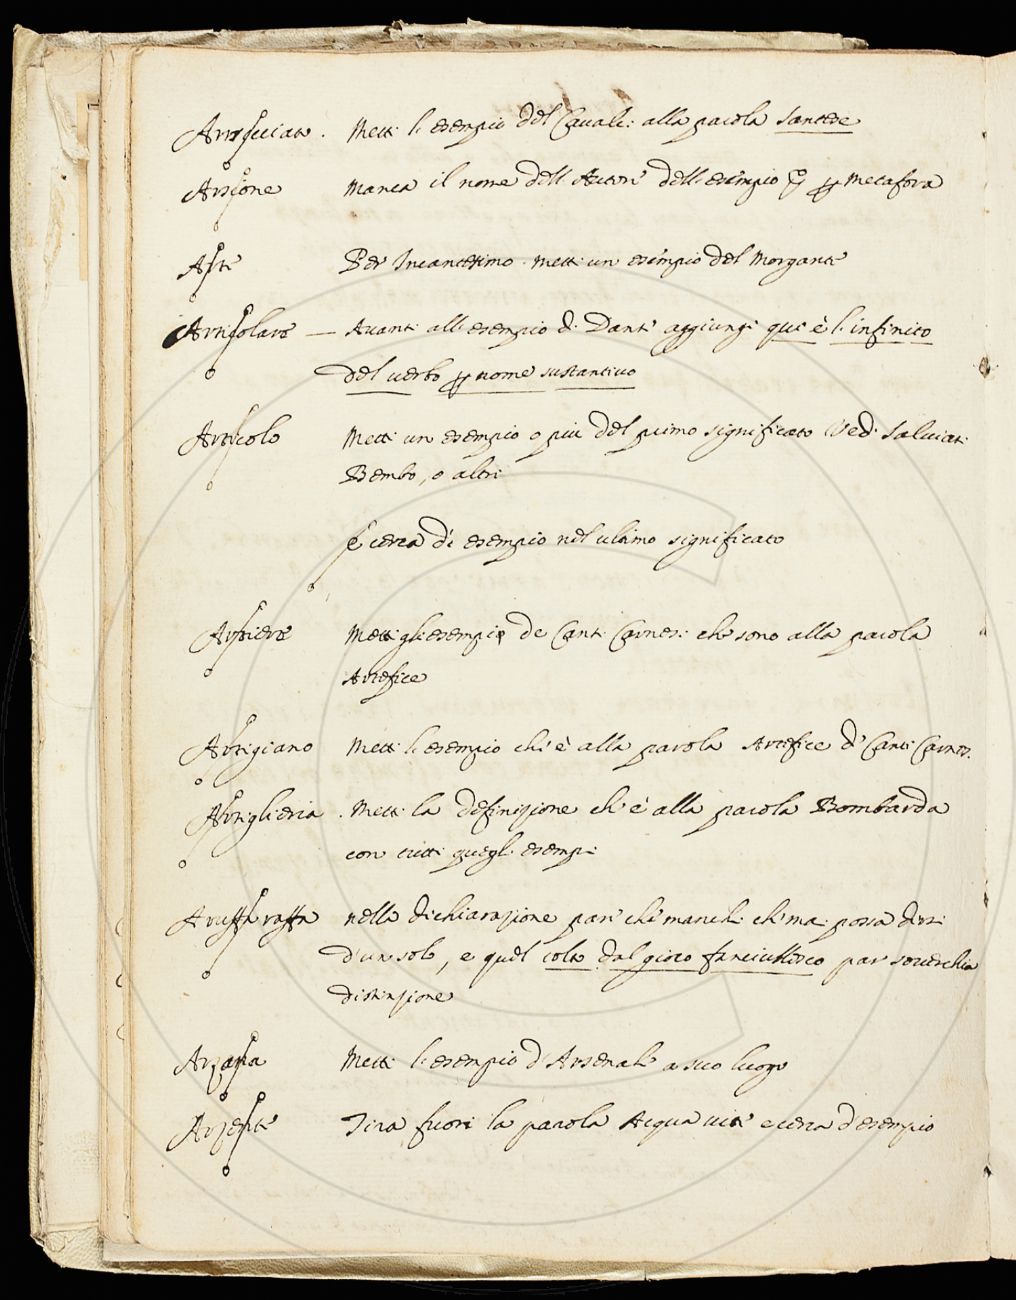 Arrosticiato. Metti l'esempio del Cavalc: alla parola Santese
Arsione Manca il nome dell'Autore dell'esempio e p metafora
Arte Per Incantesimo. Metti un esempio del Morgante
Articolare — Avanti all'esempio di Dante aggiungi qui è l'infinito
del verbo p nome sustantivo
Articolo Metti un esempio o più del primo significato Vedi Salviati
Bembo, o altri
E cerca di esempio nel ultimo significato
Artiere Metti gli esempi de Canti Carnes: che sono alla parola
Artefice
Artigiano Metti l'esempio che è alla parola Artefice de' Canti Carnes.
Artiglieria. Metti la definizione ch'è alla parola Bombarda
con tutti quegli esempi
Aruffa raffa nella dichiarazione par che manchi, che mai possa dirsi
d'un solo, e quel colto dal gioco fanciullesco par soverchia
distinzione
Arzanà Metti l'esempio d'Arsenale a suo luogo
Arzente Tira fuori la parola Acqua vite e cerca d'esempio